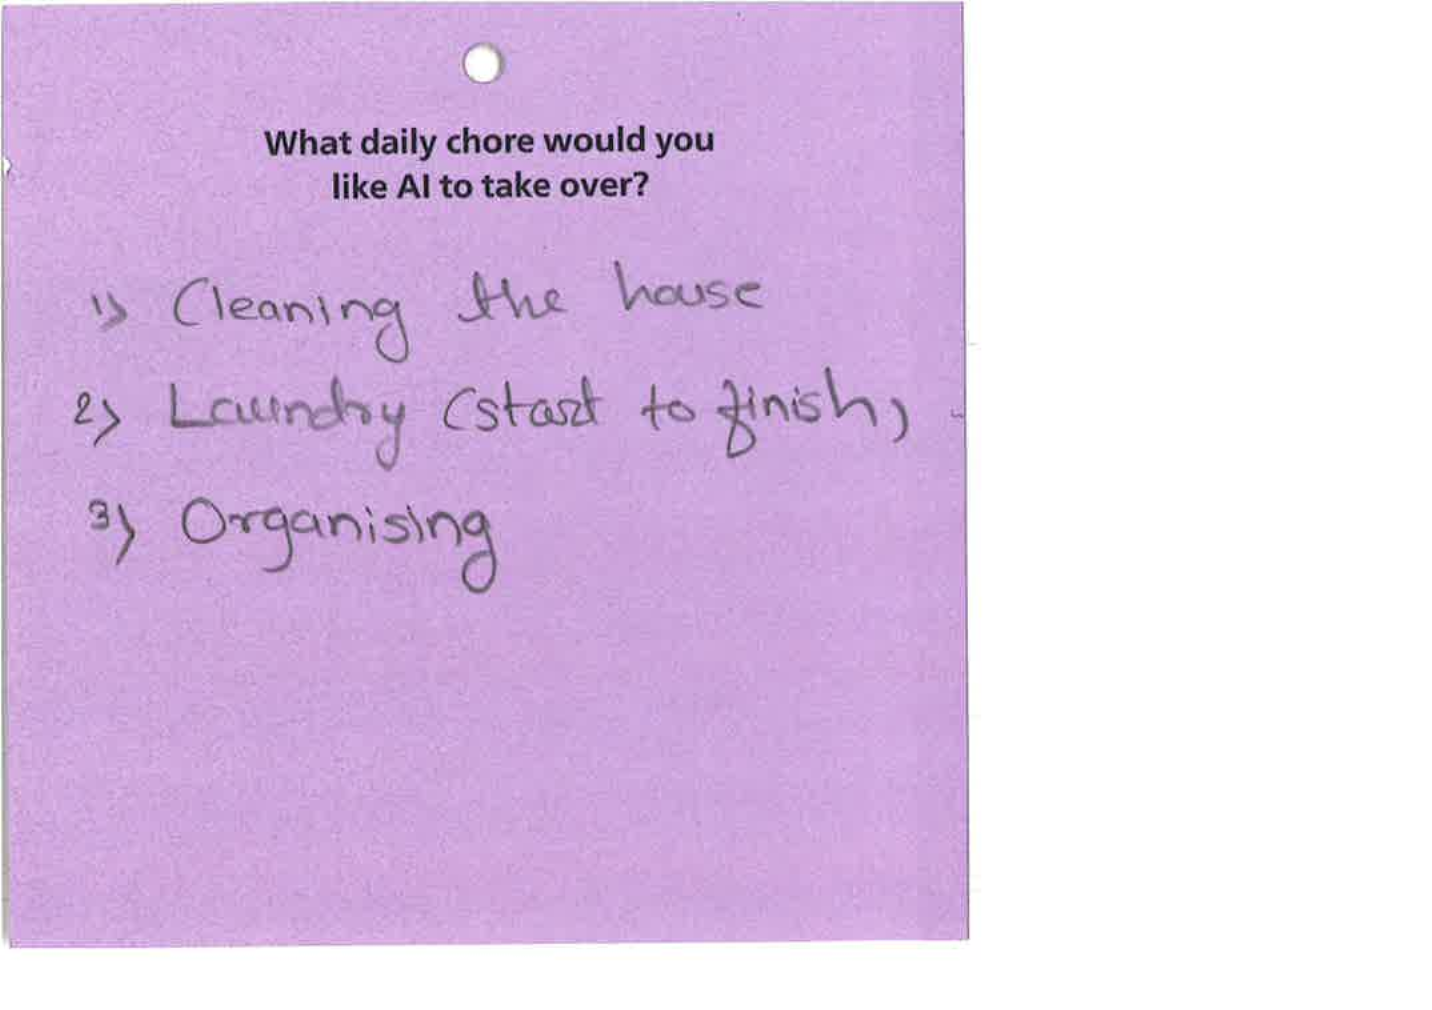 What daily chore would you
like AI to take over?
1) Cleaning the house
2) Laundry (start to finish)
3) Organising